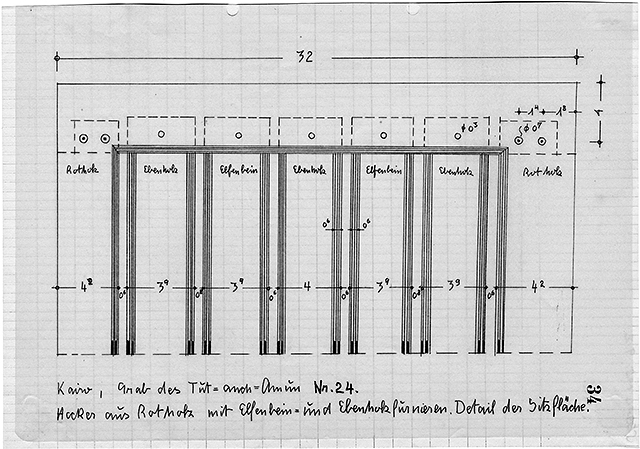 32
1⁴ 1⁸
1
ϕ 0³
ϕ 0⁴
Rotholz Ebenholz Elfenbein Ebenholz Elfenbein Ebenholz Rotholz
0⁶ 0⁶
4² 3⁹ 3⁹ 4 3⁹ 3⁹ 4²
Kairo, Grab des Tut=anch=Amun Nr. 24.
Hocker aus Rotholz mit Elfenbein= und Ebenholzfurnieren. Detail der Sitzfläche.
34